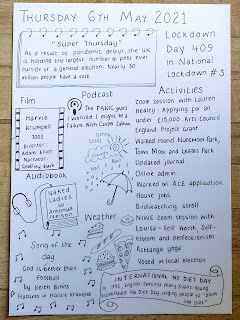 THURSDAY 6TH MAY 2021
"Super Thursday"
As a result of pandemic delays, the UK
is holding the largest number of polls ever
outside of a general election. Nearly 50
million people have a vote.
Lockdown
Day 409
in National
Lockdown #3
Film
HARVIE
KRUMPET
2003
Director:
Adam Elliot
Narrator:
Geoffrey Rush
Podcast
The PANIC years
I worried I might be a
Failure With Cason Salmon
Activities
Zoom session with Lauren
Healey - Applying for an
under £15,000 Arts Council
England Project Grant
Walked round Nunsmoor Park,
Town Moor and Leazes Park
Updated journal
Online admin
Worked on ACE application
House jobs
Birdwatching stroll
NIWE Zoom session with
Louisa - Self Worth, Self-
Esteem and perfectionism
Ashtanga yoga
Voted in local election
Audiobook
NAKED
LADIES
by
Antonya
Nelson
Weather
Song of the
day
God is better than
Football
by Keith Binns
Features in Harvie Krumpet
INTERNATIONAL NO DIET DAY
In 1992, English feminist Mary Evans Young
established No Diet Day, urging people to "ditch
the diet"